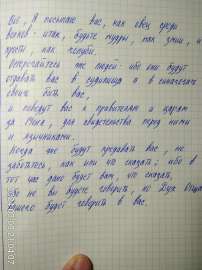 Вот, Я посылаю вас, как овец среди
волков: итак, будьте мудры, как змии, и
просты, как голуби.
Остерегайтесь же людей: ибо они будут
отдавать вас в судилища и в синагогах
своих бить вас,
и поведут вас к правителям и царям
за Меня, для свидетельства перед ними
и язычниками.
Когда же будут предавать вас, не
заботьтесь, как или что сказать; ибо в
тот час дано будет вам, что сказать,
ибо не вы будете говорить, но Дух Отца
вашего будет говорить в вас.